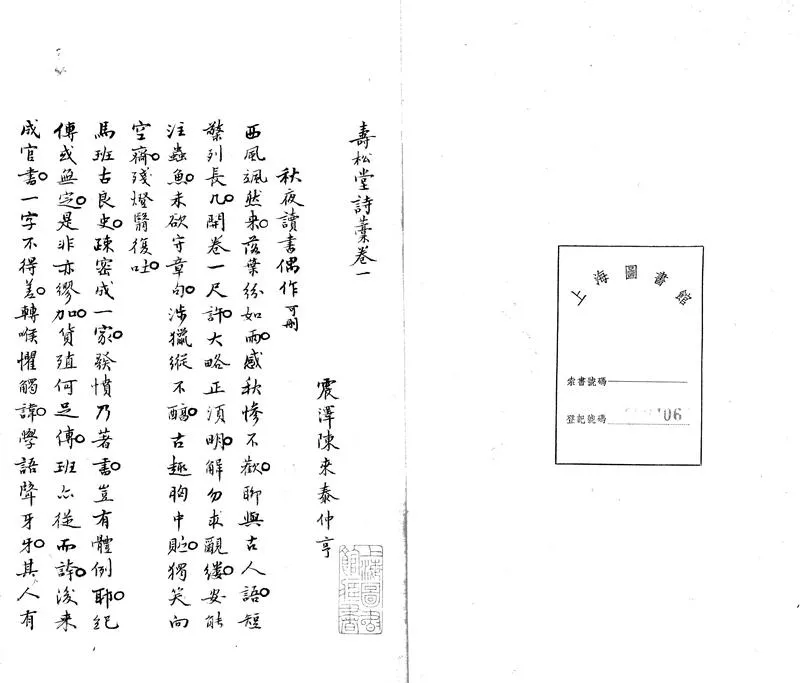 上海圖書館
索書號碼
登記號碼 06
壽松堂詩藁卷一
震澤陳來泰仲亨
秋夜讀書偶作 可刪
西風颯然來。落葉紛如雨。感秋慘不歡。聊與古人語。短
檠列長几。開卷一尺許。大略正須明。解勿求覼縷。安能
注蟲魚。未欲守章句。涉獵縱不醇。古趣胸中貯。獨笑向
空齋。殘燈翳復吐。
馬班古良史。疎密成一家。發憤乃著書。豈有體例耶。紀
傳或無定。是非亦繆加。貨殖何足傳。班亦從而誇。後来
成官書。一字不得差。轉喉懼觸諱。學語聱牙牙。其人有
上海圖書
館藏書